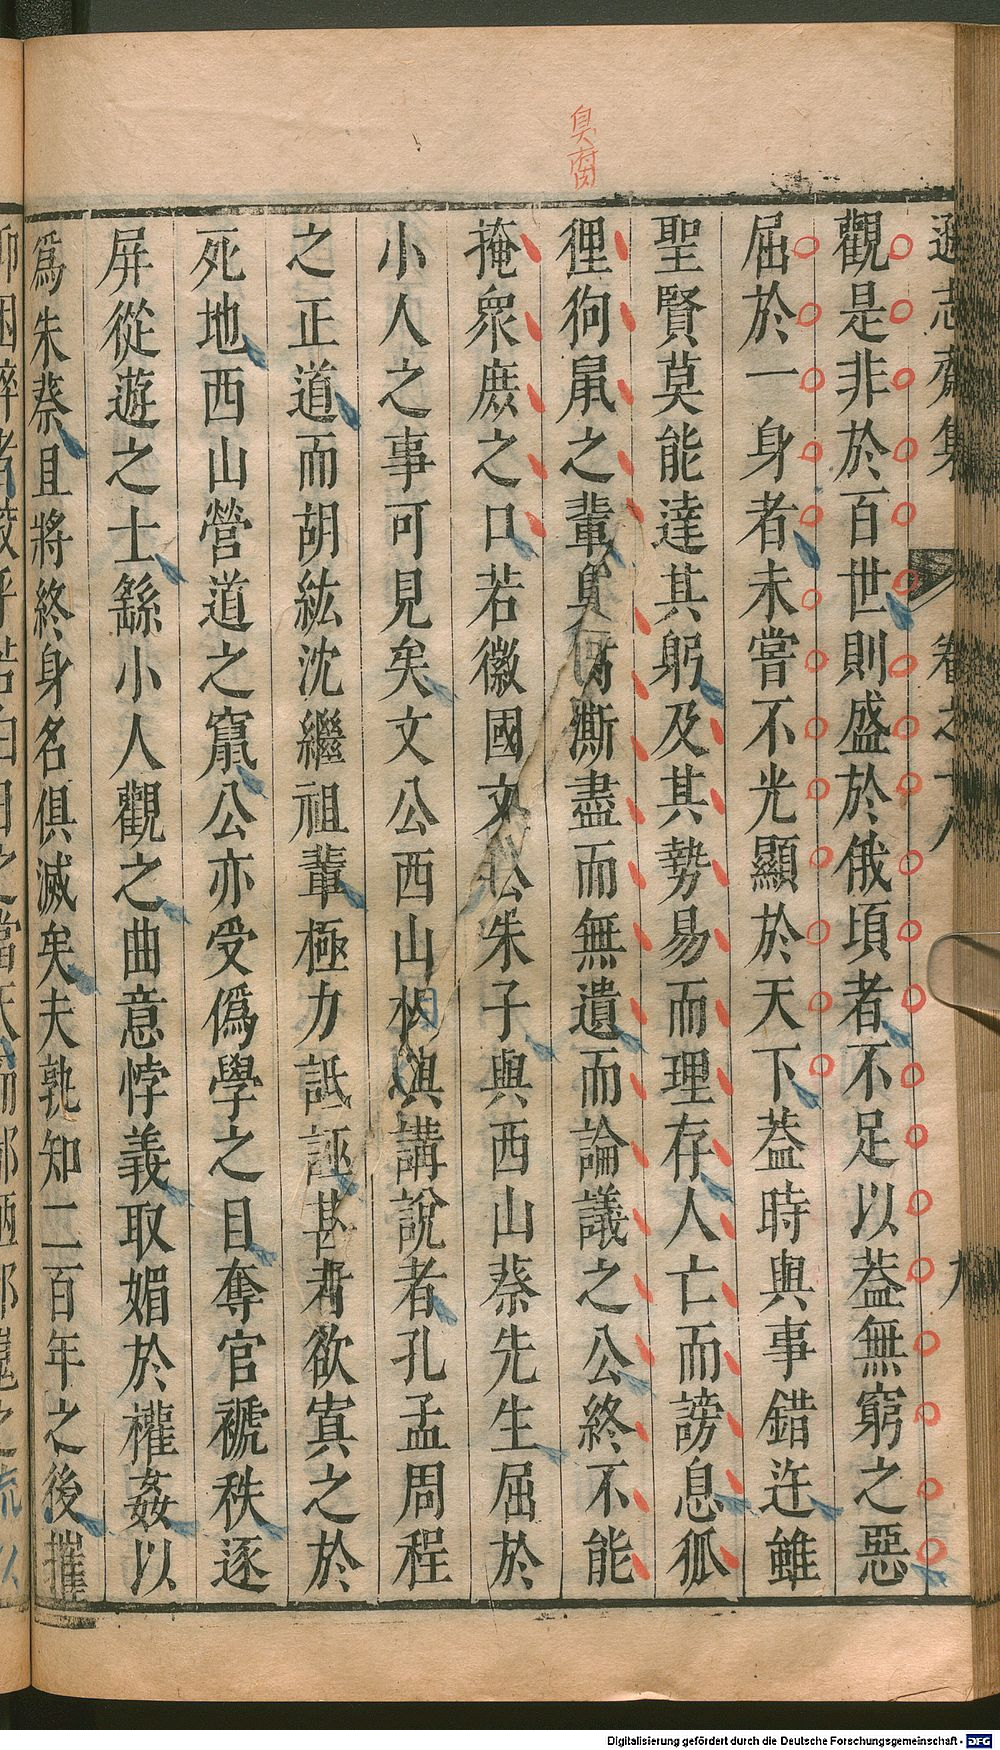 臭腐
遜志齋集 卷之十八 九
觀是非於百世則盛於俄頃者不足以葢無窮之惡
屈於一身者未嘗不光顯於天下葢時與事錯迕雖
聖賢莫能達其躬及其勢易而理存人亡而謗息狐
狸狗鼠之輩臭腐澌盡而無遺而論議之公終不能
掩衆庶之口若徽國文公朱子與西山蔡先生屈於
小人之事可見矣文公西山相與講說者孔孟周程
之正道而胡紘沈繼祖輩極力詆誣甚者欲寘之於
死地西山營道之竄公亦受僞學之目奪官褫秩逐
屏從遊之士繇小人觀之曲意悖義取媚於權姦以
爲朱蔡且將終身名俱滅矣夫孰知二百年之後摧
Digitalisierung gefördert durch die Deutsche Forschungsgemeinschaft - DFG